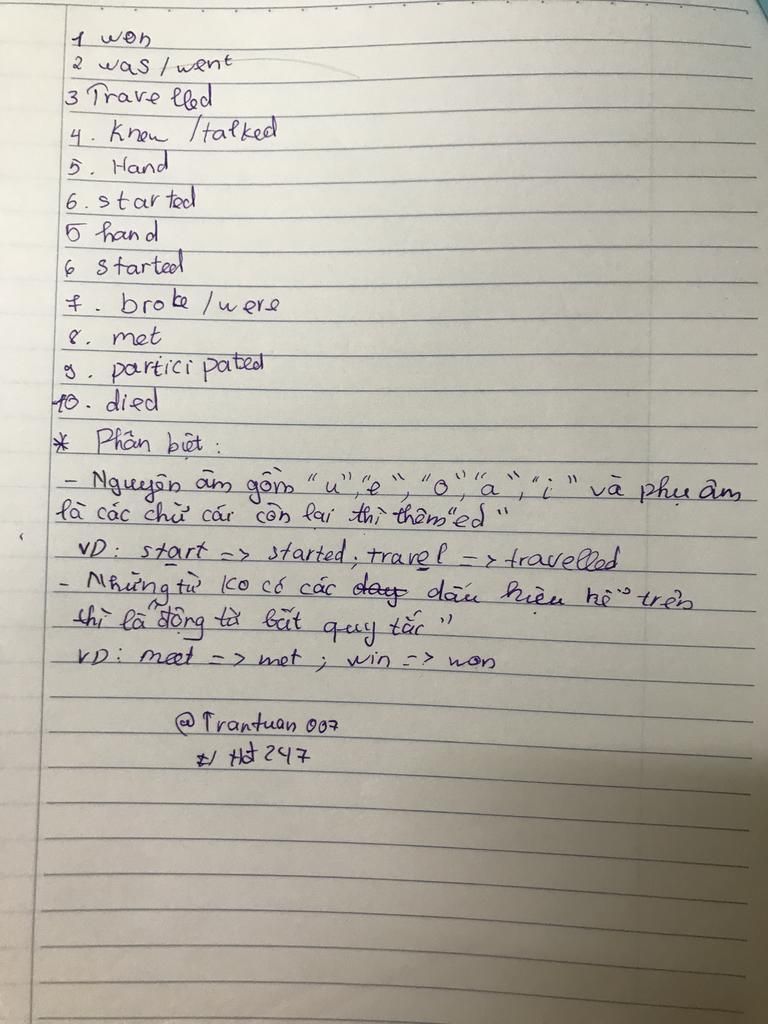 1 won
2 was / went
3 Travelled
4. Knew / talked
5. Hand
6. started
5 hand
6 started
7. broke / were
8. met
9. participated
10. died
* Phân biệt:
- Nguyên âm gồm "u", "e", "o", "a", "i" và phụ âm
là các chữ cái còn lại thì thêm "ed"
VD: start => started; travel => travelled
- Những từ ko có các dấu hiệu kể trên
thì là "động từ bất quy tắc"
VD: meet => met ; win => won
@Trantuan007
Hđ 247